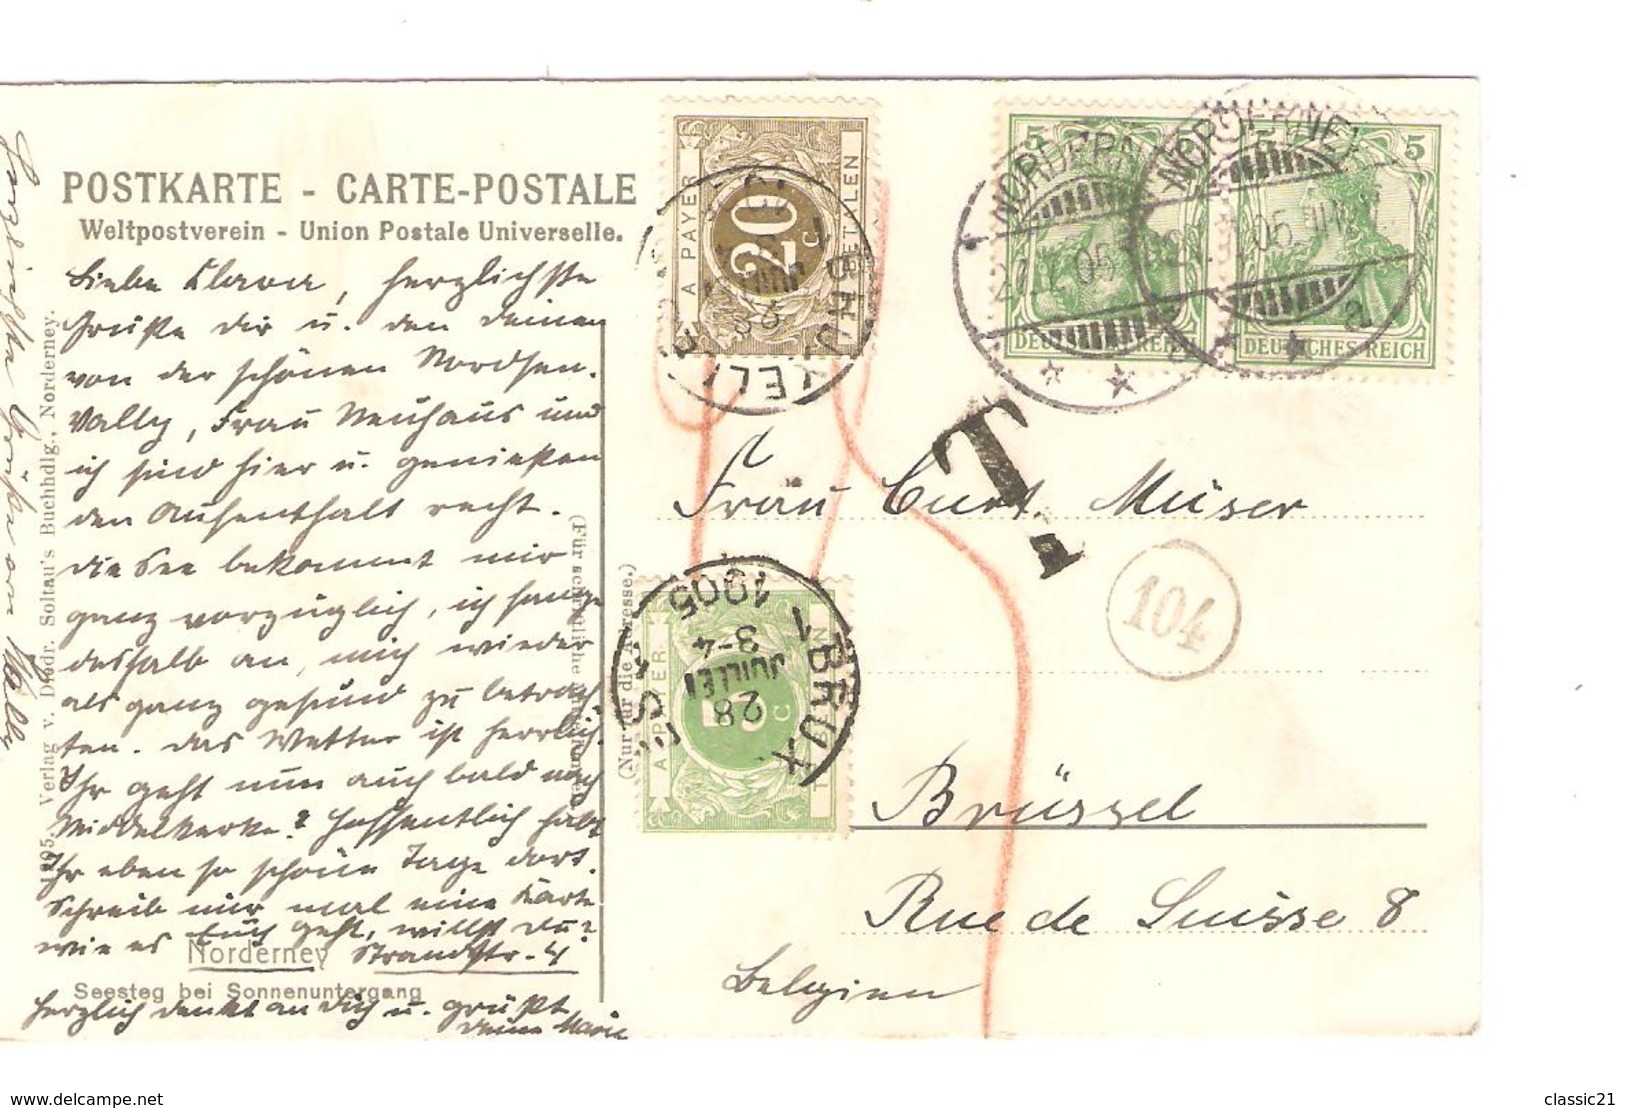 POSTKARTE - CARTE-POSTALE
Weltpostverein - Union Postale Universelle.
Liebe Klara, herzlichste
Grüße dir u. den deinen
von der schönen Nordsee.
Wally, Frau Neuhaus und
ich sind hier u. genießen
den Aufenthalt recht.
die See bekommt mir
ganz vorzüglich, ich fange
deshalb an, mich wieder
als ganz gesund zu betrach
ten. das Wetter ist herrlich.
Ihr geht nun auch bald nach
Middelkerke? Hoffentlich habt
Ihr eben so schöne Tage dort.
Schreib mir mal eine Karte
wie es Euch geht, willst du?
Norderney Strandstr. 4
Seesteg bei Sonnenuntergang
Herzlich denkt an dich u. grüßt
deine Marie
Herzlichste Grüße von Wally
1905. Verlag v. Diedr. Soltau's Buchhdlg., Norderney.
(Für schriftliche Mitteilungen.)
(Nur für die Adresse.)
A PAYER
20 c
TE BETALEN
A PAYER
5 c
1 BRUXELLES 1
28
JUILLET
3-4
1905
5 5
DEUTSCHES REICH
5 5
DEUTSCHES REICH
NORDERNEY
NORDERNEY
a
T
104
Frau Curt Müser
Brüssel
Rue de Suisse 8
Belgien
www.delcampe.net
classic21